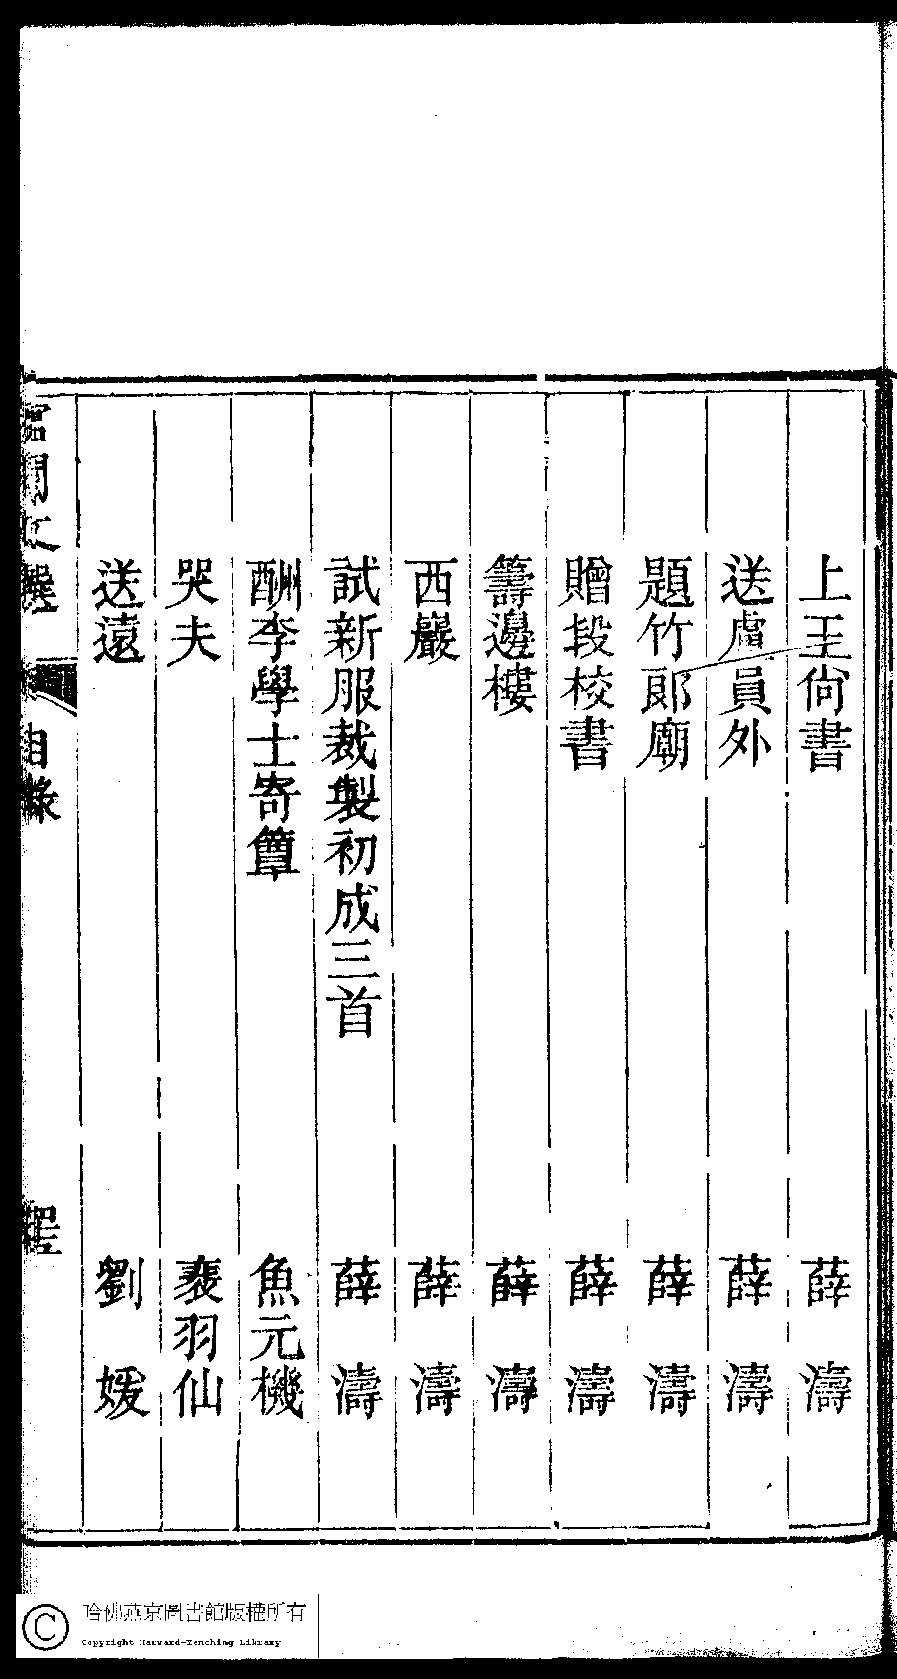 上王尙書 薛濤
送盧員外 薛濤
題竹郞廟 薛濤
贈段校書 薛濤
籌邊樓 薛濤
西巖 薛濤
試新服裁製初成三首 薛濤
酬李學士寄簟 魚元機
哭夫 裴羽仙
送遠 劉媛
宮閨文選 目錄
哈佛燕京圖書館版權所有
Copyright Harvard-Yenching Library